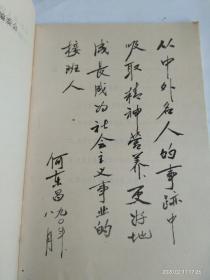 从中外名人的事跡中
吸取精神营养更好地
成長成为社会主义事业的
接班人
何东昌
九〇年
八月
2020/02/11 17:25